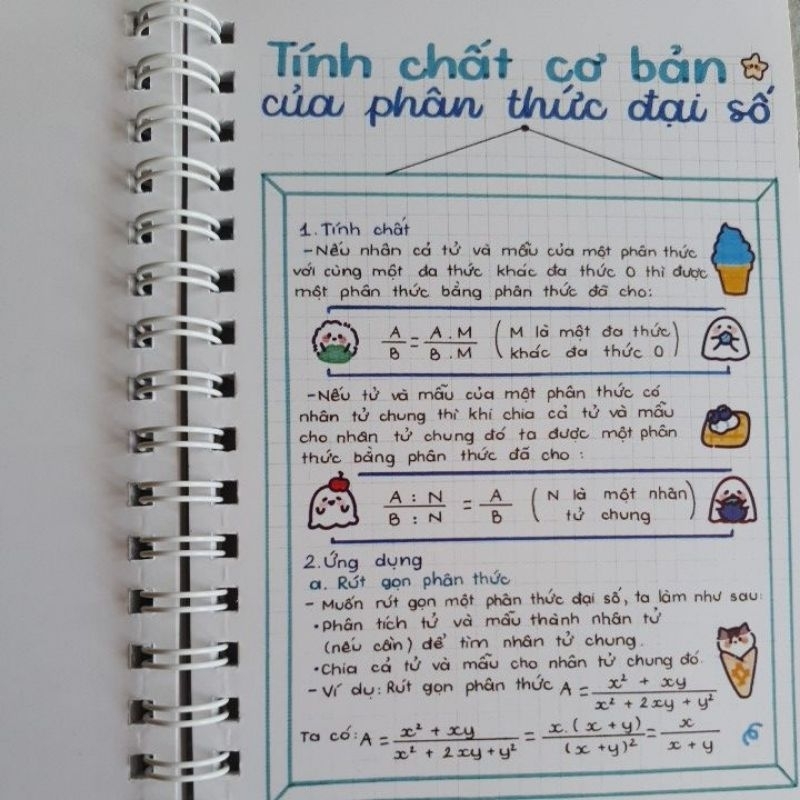 Tính chất cơ bản
của phân thức đại số
1. Tính chất
- Nếu nhân cả tử và mẫu của một phân thức
với cùng một đa thức khác đa thức 0 thì được
một phân thức bằng phân thức đã cho:
A/B = A . M/B . M (M là một đa thức
khác đa thức 0)
- Nếu tử và mẫu của một phân thức có
nhân tử chung thì khi chia cả tử và mẫu
cho nhân tử chung đó ta được một phân
thức bằng phân thức đã cho :
A : N/B : N = A/B (N là một nhân
tử chung)
2. Ứng dụng
a. Rút gọn phân thức
- Muốn rút gọn một phân thức đại số, ta làm như sau:
• Phân tích tử và mẫu thành nhân tử
(nếu cần) để tìm nhân tử chung.
• Chia cả tử và mẫu cho nhân tử chung đó.
- Ví dụ: Rút gọn phân thức A = x² + xy/x² + 2xy + y²
Ta có: A = x² + xy/x² + 2xy + y² = x.(x + y)/(x + y)² = x/x + y